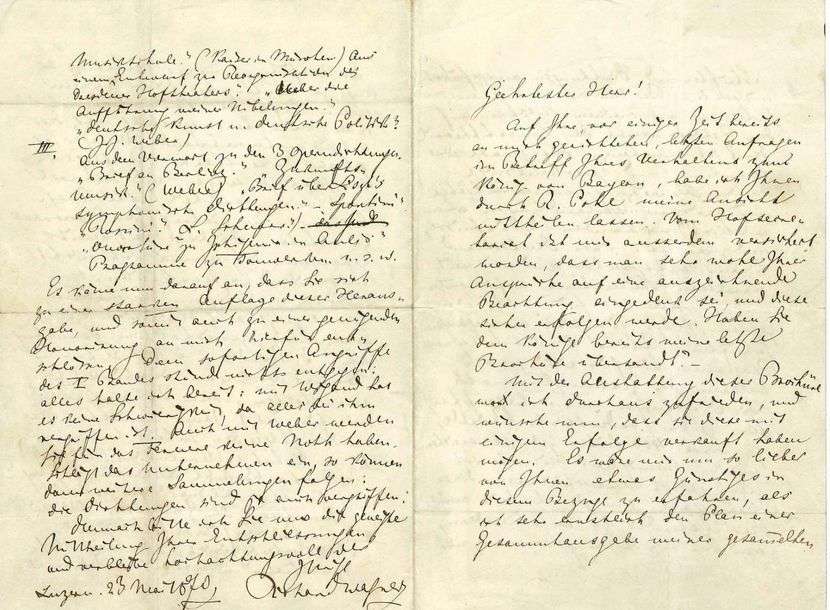 Geehrtester Herr!
Auf Ihre, vor einiger Zeit bereits
an mich gerichteten, letzten Anfragen
im Betreff Ihres Verhaltens zum
König von Bayern, habe ich Ihnen
durch R. Pohl meine Ansicht
mittheilen lassen. Vom Hofsecre-
tariat ist mir ausserdem versichert
worden, dass man sehr wohl Ihrer
Ansprüche auf eine auszeichnende
Beachtung eingedenk sei, und diese
sicher erfolgen werde. Haben Sie
dem Könige bereits meine letzte
Broschüre übersandt? —
Mit der Ausstattung dieser Broschüre
war ich durchaus zufrieden, und
wünsche nun, dass sie diese mit
einigem Erfolge verkauft haben
mögen. Es wäre mir um so lieber
von Ihnen etwas Günstiges in
diesem Bezuge zu erfahren, als
ich sehr ernstlich den Plan einer
Gesammtausgabe meiner gesammelten
Musikschule." (Kaiser in München) Aus
einem "Entwurf zur Reorganisation des
Dresdener Hoftheaters." "Ueber die
Aufführung meiner Nibelungen."
"Deutsche Kunst und deutsche Politik"
(J. J. Weber)
III. Aus dem Vorwort zu den 3 Operndichtungen.
"Brief an Berlioz." Zukunfts-
musik." (Weber) "Brief über Liszt's
symphonische Dichtungen" — "Spontini"
"Rossini" L. Schefer's)
"Ouvertüre zu Iphigenia in Aulis"
Programme zu Tonwerken u. s. w.
Es käme nun darauf an, dass Sie sich
zu einer starken Auflage dieser Heraus-
gabe, und somit auch zu einer genügenden
Honorirung an mich hierfür ent-
schlössen. Dem sofortigen Angriffe
des I Bandes stünde nichts entgegen:
alles halte ich bereit: mit Wigand hat
es keine Schwierigkeit, da alles bei ihm
vergriffen ist. Auch mit Weber werden
Sie für das Fernere keine Noth haben.
Schlägt das Unternehmen ein, so können
dann weitere Sammlungen folgen:
die Dichtungen sind ja auch vergriffen.
Demnach bitte ich Sie um die geneigte
Mittheilung Ihrer Entschliessungen
und verbleibe hochachtungsvoll der
Ihrige
Luzern. 23 Mai 1870, Richard Wagner